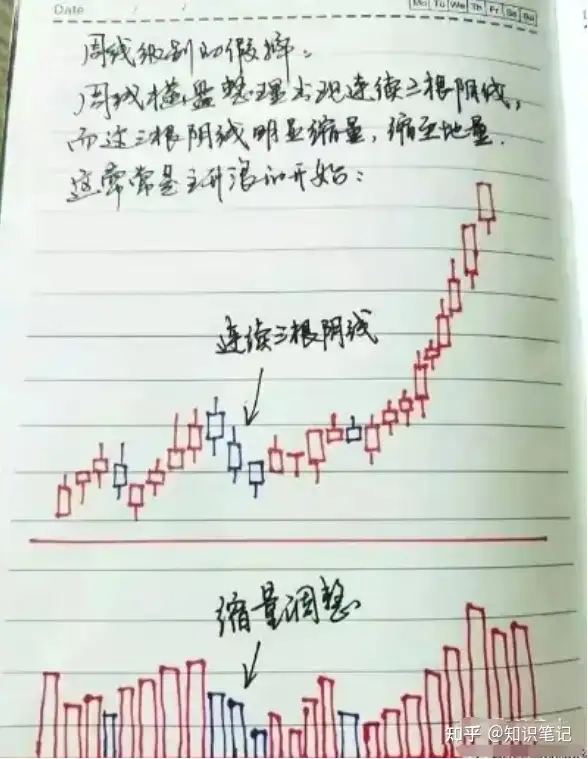 Date / /
Mo Tu We Th Fr Sa Su
周线级别的假摔。
周线横盘整理出现连续三根阴线，
而这三根阴线明显缩量，缩至地量.
这常常是主升浪的开始：
连续三根阴线
缩量调整
知乎 @知识笔记